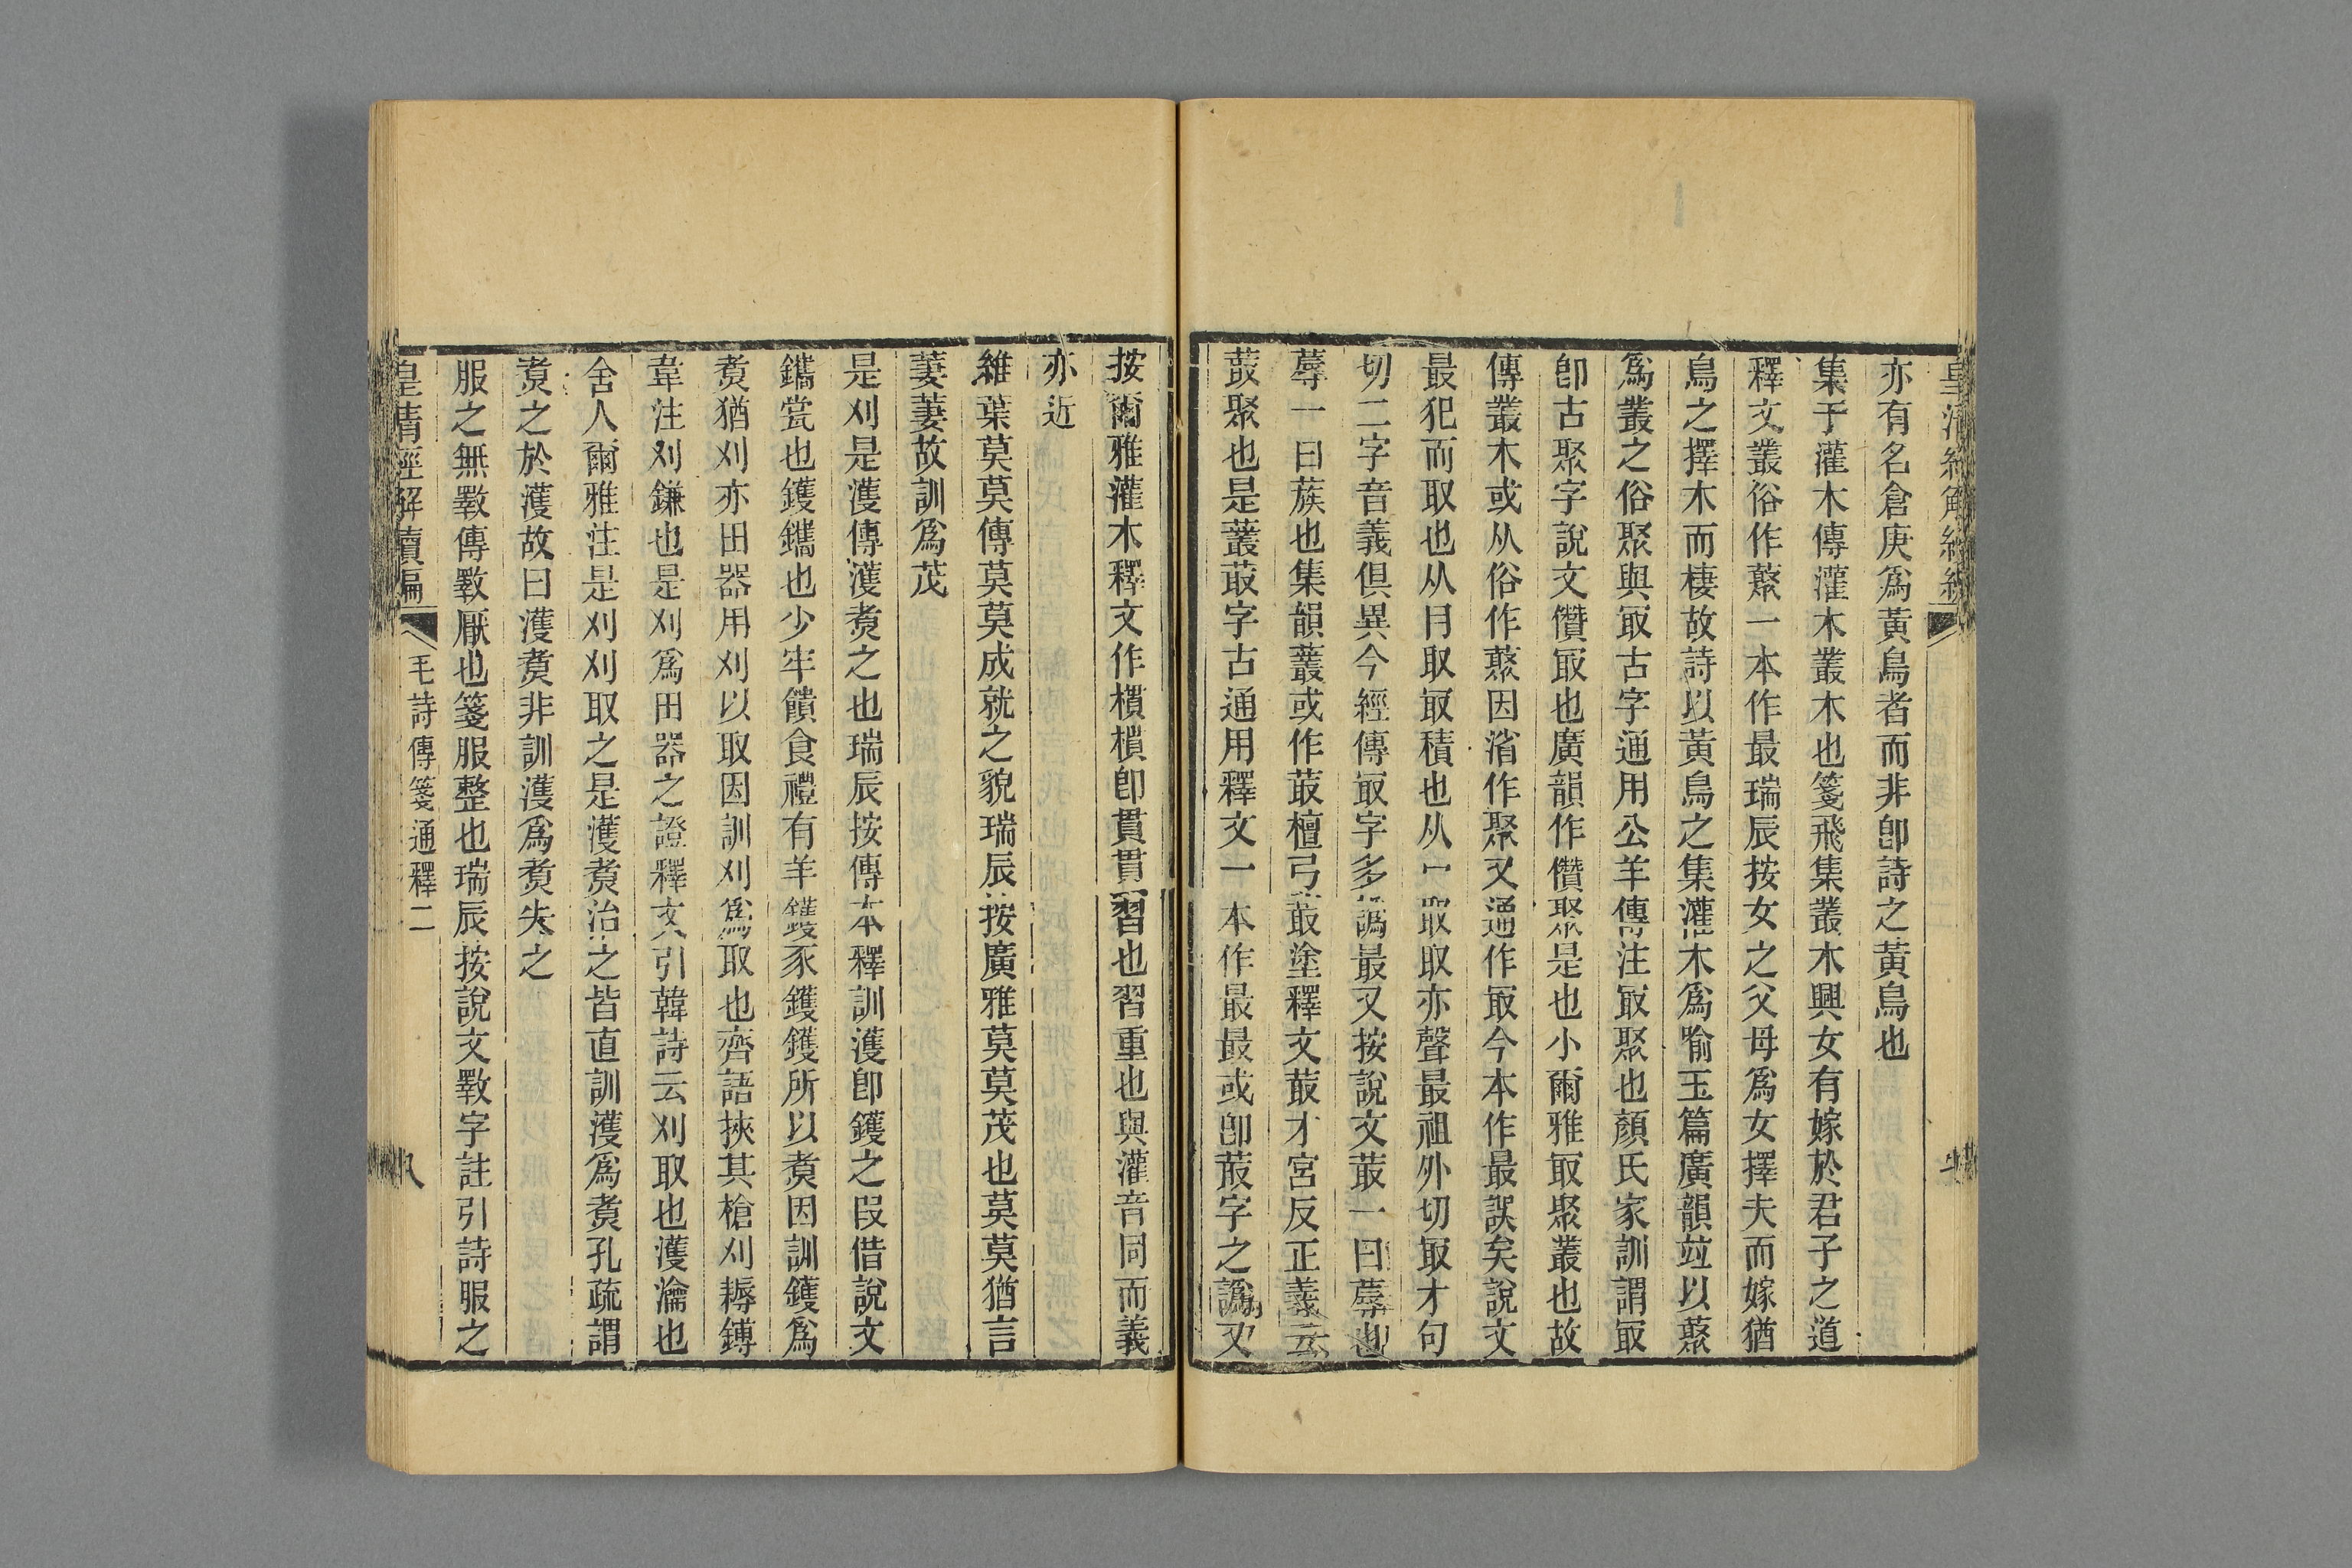 亦有名倉庚爲黃鳥者而非卽詩之黃鳥也
集于灌木傳灌木叢木也箋飛集叢木興女有嫁於君子之道
釋文叢俗作藂一本作最瑞辰按女之父母爲女擇夫而嫁猶
鳥之擇木而棲故詩以黃鳥之集灌木爲喻玉篇廣韻竝以藂
爲叢之俗聚與冣古字通用公羊傳注冣聚也顏氏家訓謂冣
卽古聚字說文儹冣也廣韻作儹聚是也小爾雅冣聚叢也故
傳叢木或从俗作藂因渻作聚又通作冣今本作最誤矣說文
最犯而取也从冃取冣積也从冖取取亦聲最祖外切冣才句
切二字音義倶異今經傳冣字多譌最又按說文菆一曰蓐也
蓐一曰蔟也集韻叢或作菆檀弓菆塗釋文菆才官反正義云
菆聚也是叢菆字古通用釋文一本作最最或卽菆字之譌又
按爾雅灌木釋文作樌樌卽貫貫習也習重也與灌音同而義
亦近
維葉莫莫傳莫莫成就之貌瑞辰按廣雅莫莫茂也莫莫猶言
萋萋故訓爲茂
是刈是濩傳濩煑之也瑞辰按傳本釋訓濩卽鑊之叚借說文
鑴瓽也鑊鑴也少牢饋食禮有羊鑊豕鑊鑊所以煑因訓鑊爲
煑猶刈亦田器用刈以取因訓刈爲取也齊語挾其槍刈耨鎛
韋注刈鎌也是刈爲田器之證釋文引韓詩云刈取也濩瀹也
舍人爾雅注是刈刈取之是濩煑治之皆直訓濩爲煑孔疏謂
煑之於濩故曰濩煑非訓濩爲煑失之
服之無斁傳斁厭也箋服整也瑞辰按說文斁字註引詩服之
皇清經解續編
毛詩傳箋通釋二
八